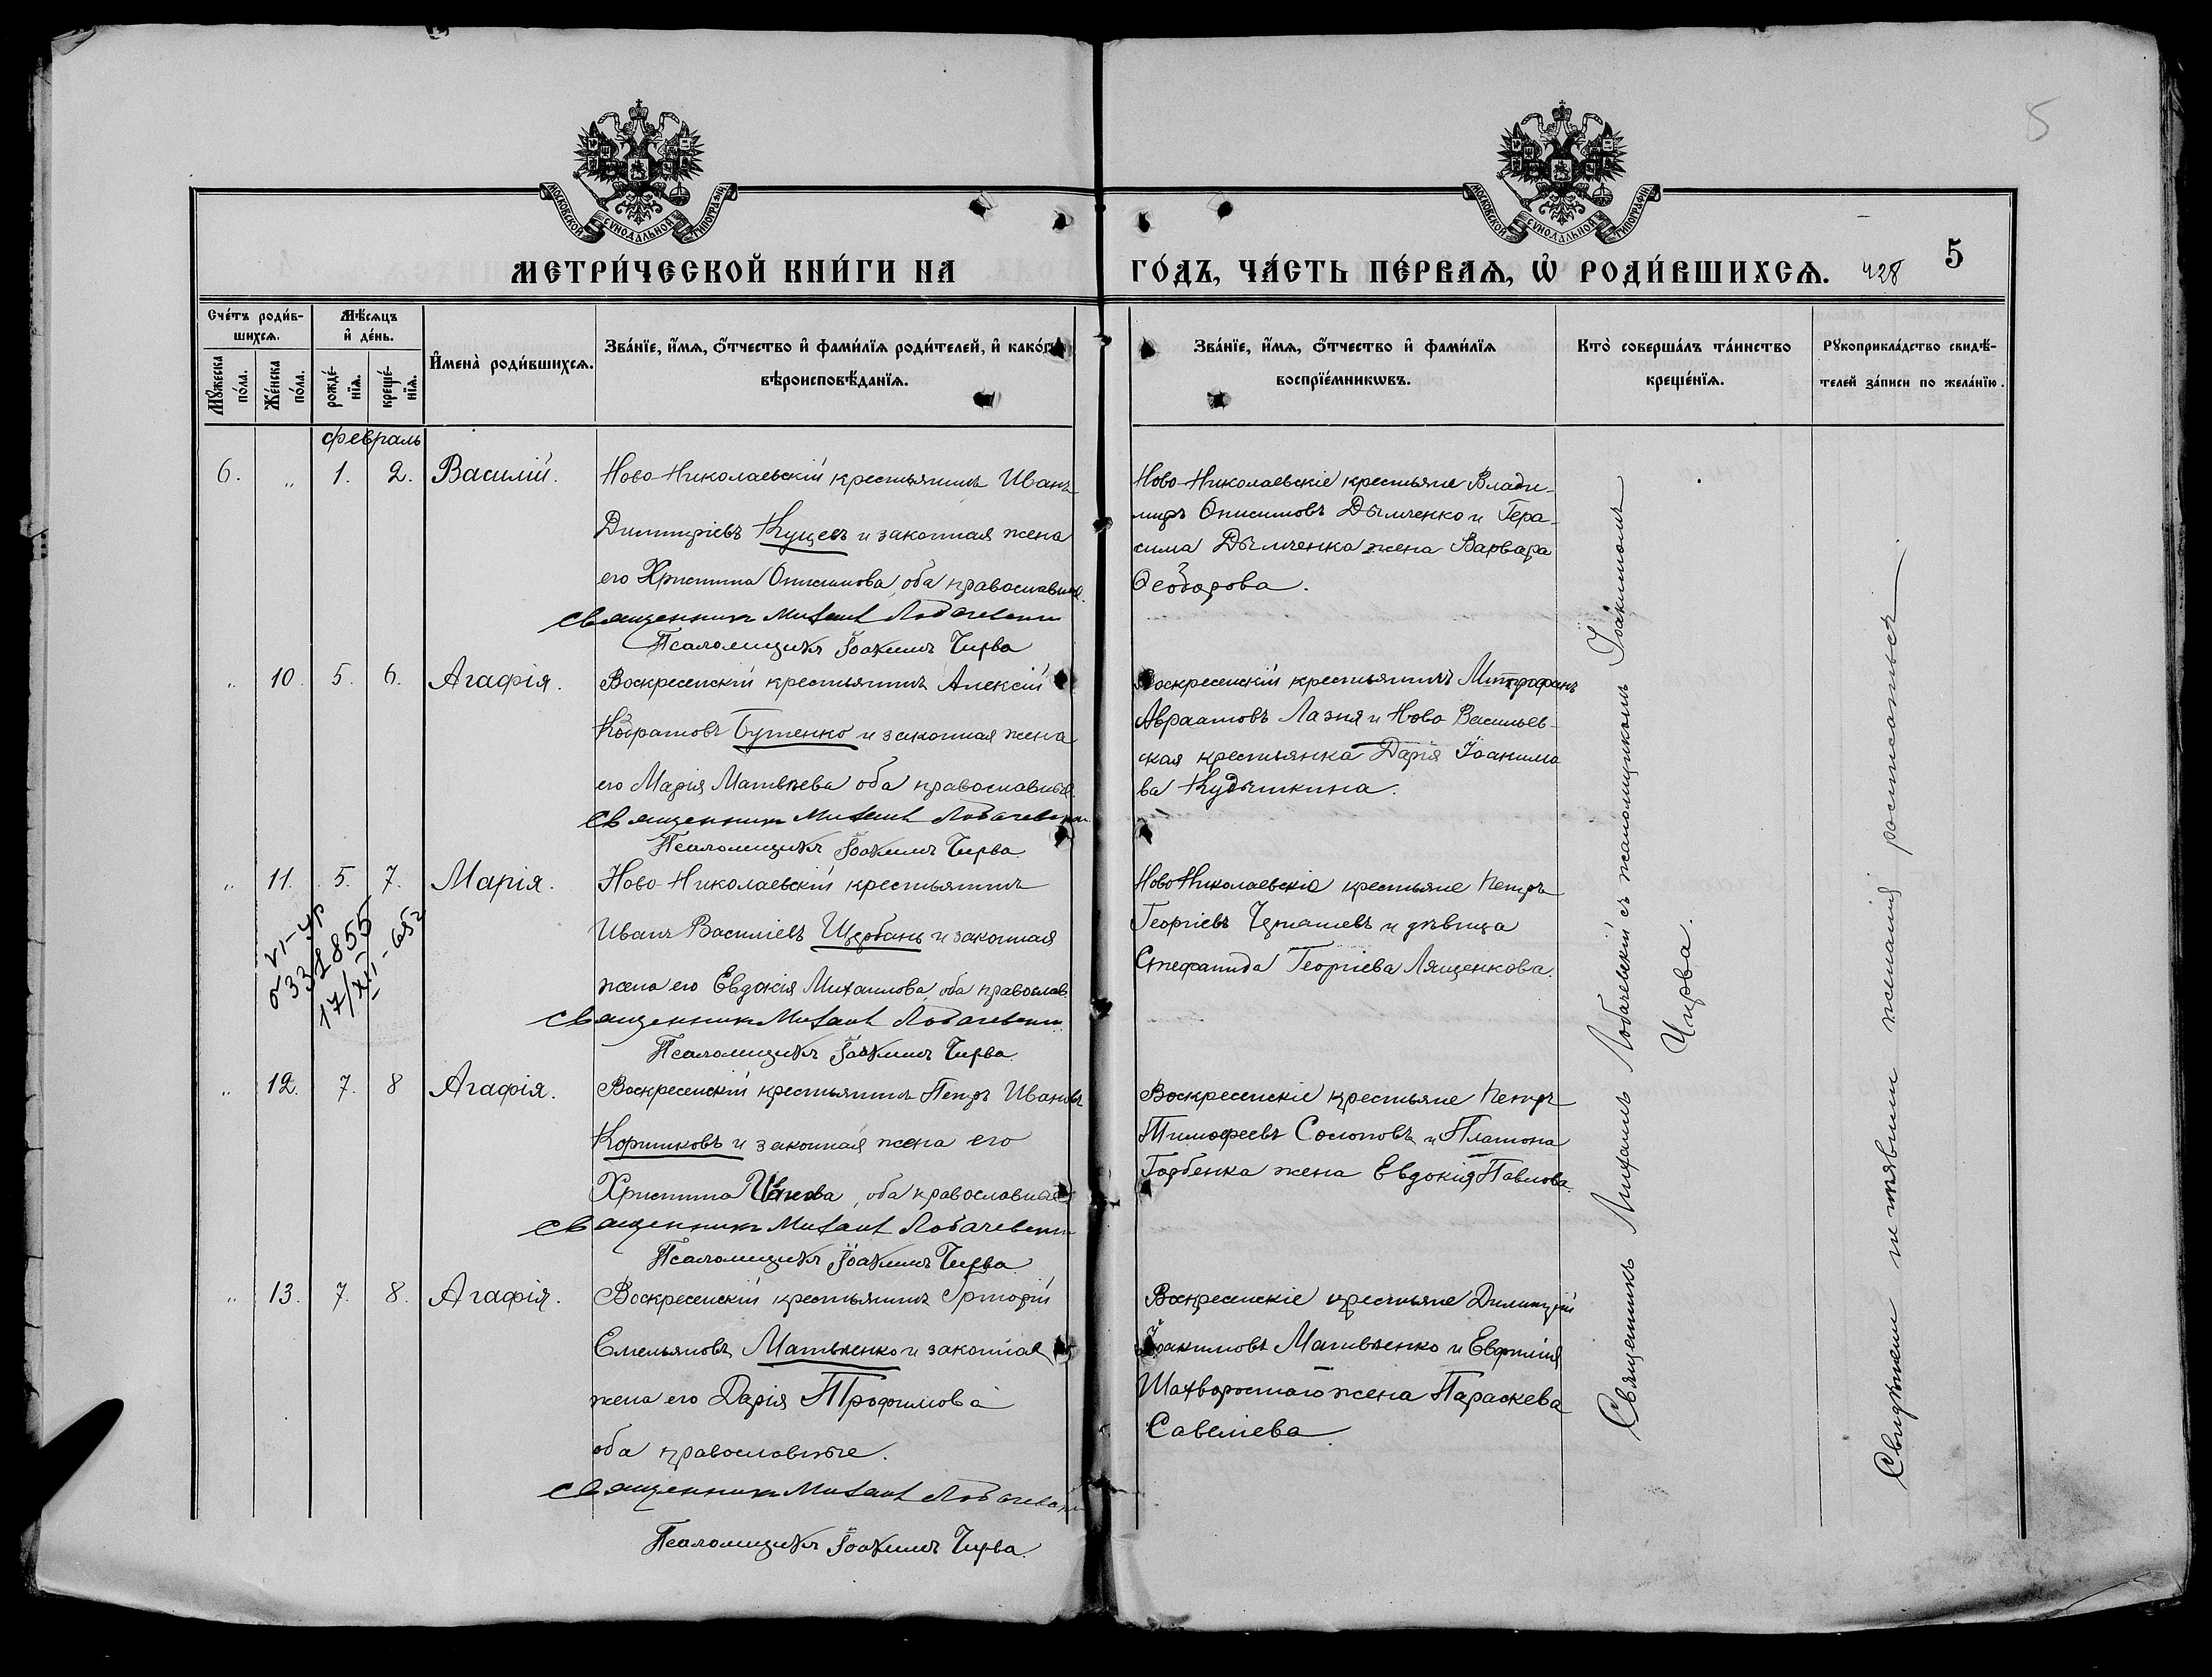 5
МОСКОВСКОЙ СѴНОДАЛЬНОЙ ТИПОГРАФІИ
МОСКОВСКОЙ СѴНОДАЛЬНОЙ ТИПОГРАФІИ
МЕТРИ́ЧЕСКОЙ КНИ́ГИ НА
ГО́ДЪ, ЧА́СТЬ ПЕ́РВАѦ, Ѡ҆ РОДИ́ВШИХСѦ. 428 5
Сче́тъ роди́в-
шихсѧ.
Мꙋ́жеска по́ла.
Же́нска по́ла.
Мѣ́сѧцъ
и҆ де́нь.
рожде́-нїѧ.
креще́-нїѧ.
И҆мена̀ роди́вшихсѧ.
Зва́нїе, и҆́мѧ, ѻ҆́тчество и҆ фами́лїѧ роди́телей, и҆ како́гѡ
вѣроисповѣ́данїѧ.
Зва́нїе, и҆́мѧ, ѻ҆́тчество и҆ фами́лїѧ
воспрїе́мникѡвъ.
Кто̀ соверша́лъ та́инство
креще́нїѧ.
Рꙋкоприкла́дство свидѣ́-
телей за́писи по жела́нїю.
февраль
6. „ 1. 2. Василій.
Ново-Николаевскій крестьянинъ Иванъ
Димитріевъ Куцевъ и законная жена
его Христина Онисимова, оба православные.
Священникъ Михаилъ Лобачевскій
Псаломщикъ Іоакимъ Чирва
Ново-Николаевскіе крестьяне Влади-
миръ Онисимовъ Дымченко и Гера-
сима Дымченка жена Варвара
Ѳеодорова.
„ 10. 5. 6. Агафія.
Воскресенскій крестьянинъ Алексій
Кодратовъ Бутенко и законная жена
его Марія Матвѣева оба православные.
Священникъ Михаилъ Лобачевскій
Псаломщикъ Іоакимъ Чирва.
Воскресенскій крестьянинъ Митрофанъ
Авраамовъ Лазня и Ново Васильев-
ская крестьянка Дарія Іоакимо
ва Кудышкина.
„ 11. 5. 7. Марія.
Ново-Николаевскій крестьянинъ
Иванъ Василіевъ Щербань и законная
жена его Евдокія Михаилова, оба православ.
Священникъ Михаилъ Лобачевскій
Псаломщикъ Іоакимъ Чирва.
Ново Николаевскіе крестьяне Петръ
Георгіевъ и дѣвица
Стефанида Георгіева Лященкова.
17/XII-65г
„ 12. 7. 8 Агафія.
Воскресенскій крестьянинъ Петръ Ивановъ
Коршиковъ и законная жена его
Христина Иванова, оба православные
Священникъ Михаилъ Лобачевскій
Псаломщикъ Іоакимъ Чирва.
Воскресенскіе крестьяне Петръ
Тимоѳеевъ Солоповъ и Платона
Горбенка жена Евдокія Павлова.
„ 13. 7. 8. Агафія.
Воскресенскій крестьянинъ Григорій
Емельяновъ Матвѣенко и законная
жена его Дарія Трофимова
оба православные.
Священникъ Михаилъ Лобачевскій
Псаломщикъ Іоакимъ Чирва.
Воскресенскіе крестьяне Димитрій
Іоакимовъ Матвѣенко и Евфимія
Шахворостаго жена Параскева
Савеліева.
Священникъ Михаилъ Лобачевскій съ псаломщикомъ Іоакимомъ
Чирва.
Свидѣтели не изъявили желанія росписаться